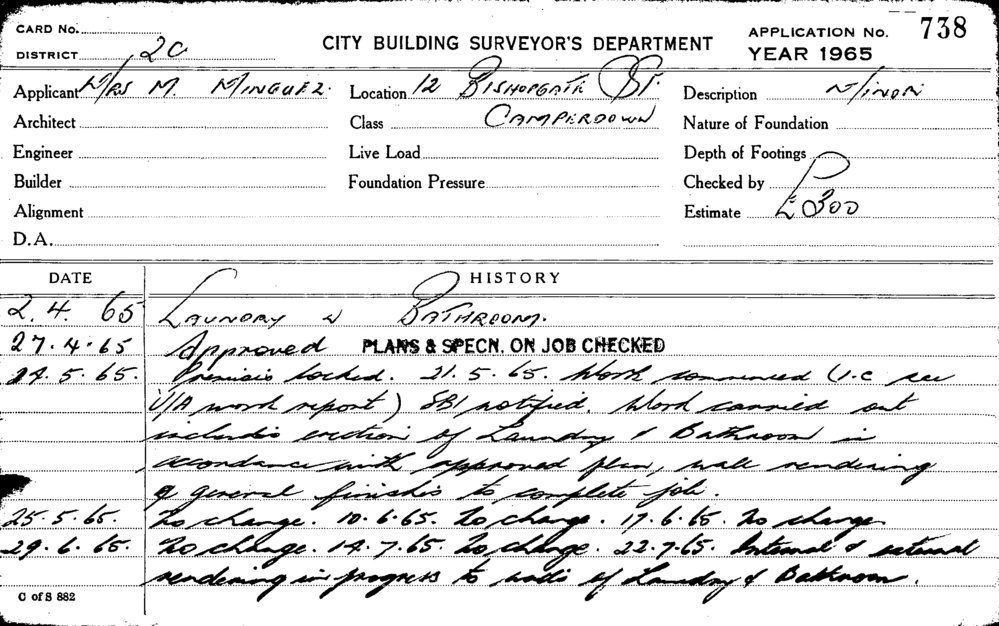 CARD No.
DISTRICT 2C
CITY BUILDING SURVEYOR'S DEPARTMENT
APPLICATION No. 738
YEAR 1965
Applicant Mrs M. MINGUEZ.
Location 12 BISHOPGATE ST.
Description MINOR
Architect
Class CAMPERDOWN
Nature of Foundation
Engineer
Live Load
Depth of Footings
Builder
Foundation Pressure
Checked by
Alignment
Estimate £300
D.A.
DATE HISTORY
2. 4. 65 LAUNDRY & BATHROOM.
27. 4. 65 Approved PLANS & SPECN. ON JOB CHECKED
24. 5. 65. Premises locked. 21. 5. 65. Work commenced (I.C see
U/A work report) SBI notified. Work carried out
includes erection of Laundry & Bathroom in
accordance with approved plan, wall rendering
& general finishes to complete job.
25. 5. 65. No change. 10. 6. 65. No change. 17. 6. 65. No change.
29. 6. 65. No change. 14. 7. 65. No change. 22. 7. 65. Internal & external
rendering in progress to walls of Laundry & Bathroom.
C of S 882